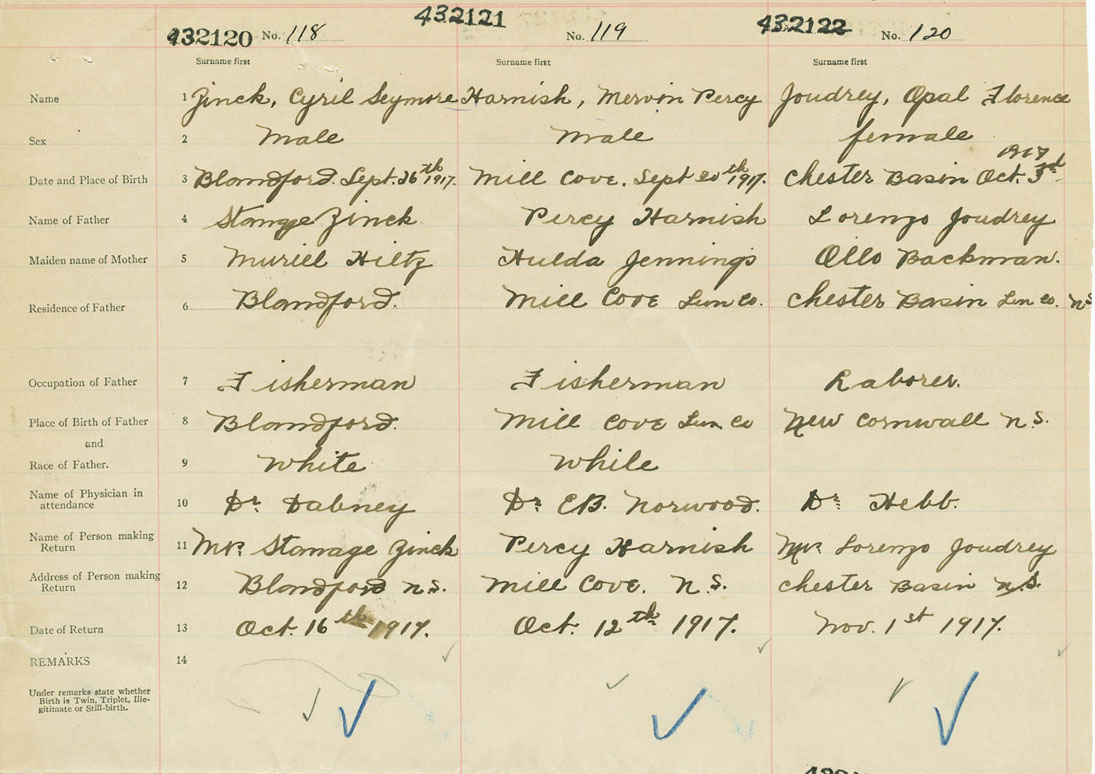 432120 No. 118 432121 No. 119 432122 No. 120
Surname first Surname first Surname first
Name 1 Zinck, Cyril Seymore Harnish, Mervin Percy Joudrey, Opal Florence
Sex 2 Male Male female
1917
Date and Place of Birth 3 Blandford. Sept. 26th 1917. Mill Cove. Sept 20th 1917. Chester Basin Oct. 3rd
Name of Father 4 Zinck Percy Harnish Lorenzo Joudrey
Maiden name of Mother 5 Muriel Hiltz Hulda Jennings Ollo Backman.
Residence of Father 6 Blandford. Mill Cove Lun Co. Chester Basin Lun Co. NS
Occupation of Father 7 Fisherman Fisherman Laborer.
Place of Birth of Father 8 Blandford. Mill Cove Lun Co New Cornwall N.S.
and
Race of Father. 9 White White
Name of Physician in
attendance 10 Dr. Dabney Dr. E.B. Norwood. Dr. Hebb.
Name of Person making
Return 11 Mr. Stanage Zinck Percy Harnish Mr. Lorenzo Joudrey
Address of Person making
Return 12 Blandford N.S. Mill Cove. N.S. Chester Basin N.S.
Date of Return 13 Oct. 16th 1917. Oct. 12th 1917. Nov. 1st 1917.
REMARKS 14
Under remarks state whether
Birth is Twin, Triplet, Ille-
gitimate or Still-birth.